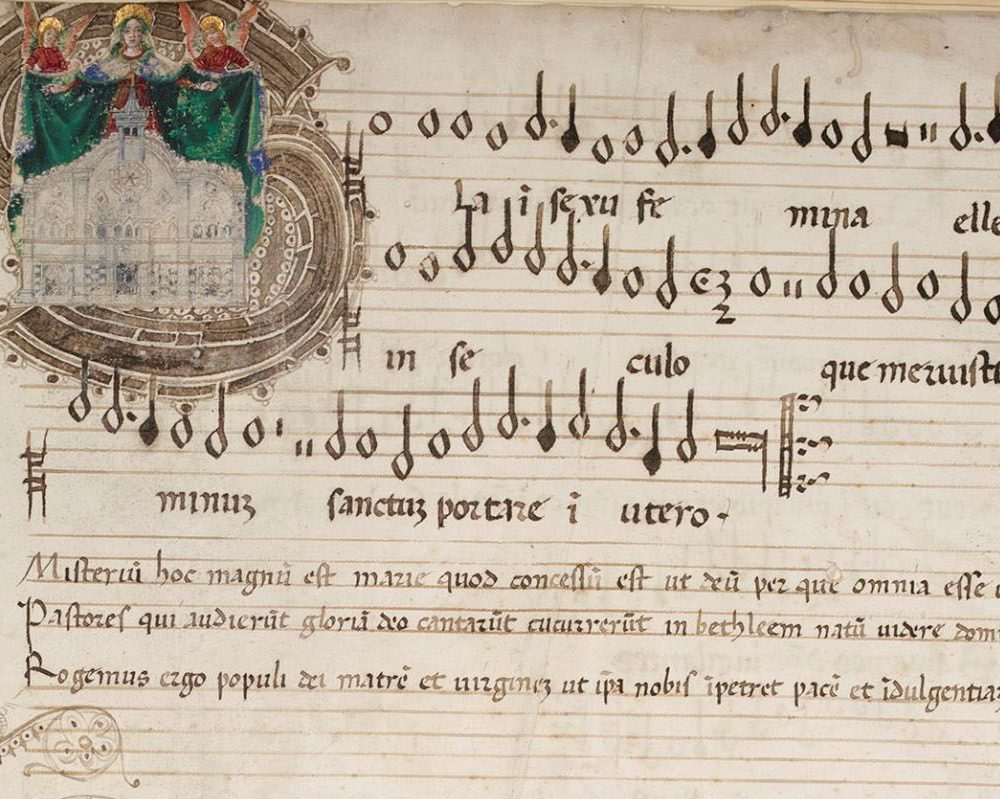 La ī sexu fe mina elle
in se culo que meruist
minuz sanctuz portare ī utero.
Misteriū hoc magnū est marie quod concessū est ut deū per quē omnia esse
Pastores qui audierūt gloriā deo cantarūt cucurrerūt in bethleem natū uidere dom
Rogemus ergo populi dei matrē et uirginez ut ip̄a nobis īpetret pacē et īdulgentiaz